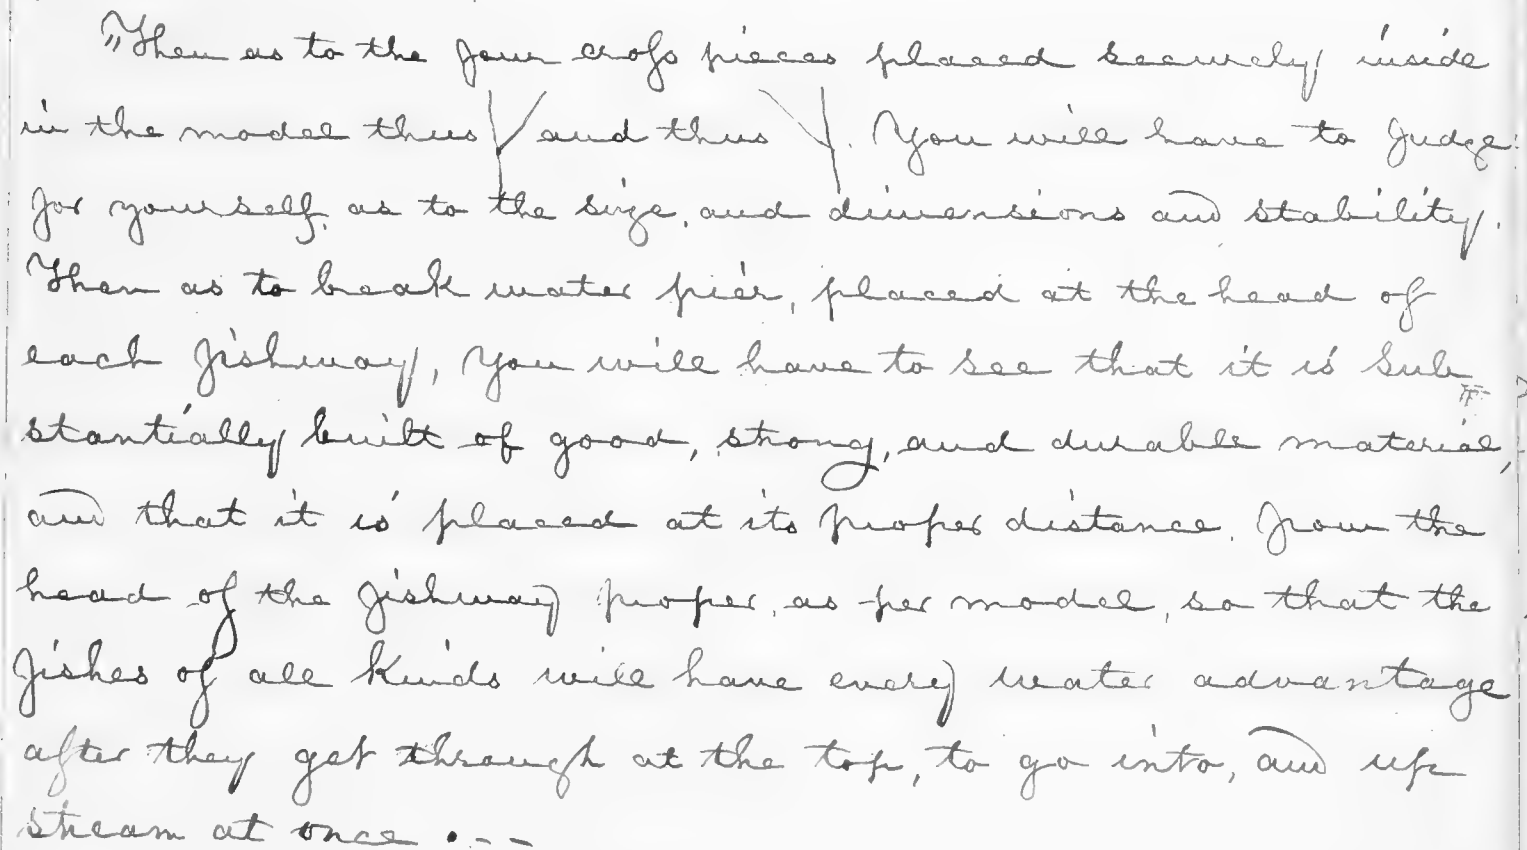 "Then as to the four cross pieces placed securely inside
in the model thus and thus . You will have to Judge
for yourself, as to the size, and dimensions and stability.
Then as to break water pier, placed at the head of
each fishway, You will have to see that it is Sub
stantially built of good, strong, and durable material,
and that it is placed at its proper distance. from the
head of the fishway proper, as per model, so that the
fishes of all Kinds will have every water advantage
after they get through at the top, to go into, and up
stream at once . - -